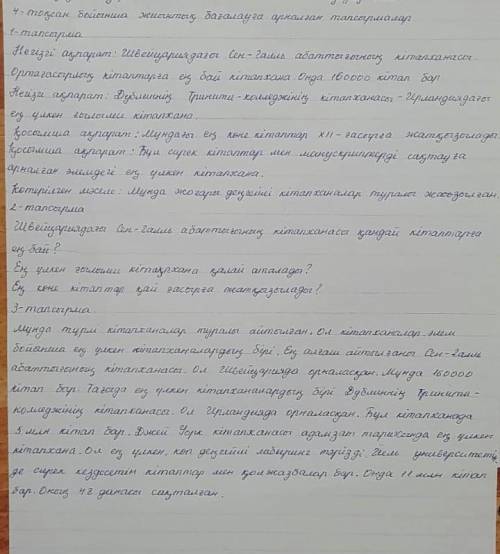 4-тоқсан бойынша жиынтық бағалауға арналған тапсырмалар
1-тапсырма
Негізгі ақпарат: Швейцариядағы Сен-Галль абаттығының кітапханасы.
Ортағасырлық кітаптарға ең бай кітапхана. Онда 160000 кітап бар
Негізгі ақпарат: Дублиннің Тринити-колледжінің кітапханасы - Ирландиядағы
ең үлкен ғылыми кітапхана.
Қосымша ақпарат: Мұндағы ең көне кітаптар XII-ғасырға жатқызылады.
Қосымша ақпарат: Бұл сирек кітаптар мен манускриптерді сақтауға
арналған әлемдегі ең үлкен кітапхана.
Көтерілген мәселе: Мұнда жоғары деңгейлі кітапханалар туралы жазылған.
2-тапсырма
Швейцариядағы Сен-Галль абаттығының кітапханасы қандай кітаптарға
ең бай?
Ең үлкен ғылыми кітапхана қалай аталады?
Ең көне кітаптар қай ғасырға жатқызылады?
3-тапсырма
Мұнда түрлі кітапханалар туралы айтылған. Ол кітапханалар әлем
бойынша ең үлкен кітапханалардың бірі. Ең алғаш айтылғаны Сен-Галль
абаттығының кітапханасы. Ол Швейцарияда орналасқан. Мұнда 160000
кітап бар. Тағыда ең үлкен кітапханалардың бірі Дублиннің Тринити-
колледжінің кітапханасы. Ол Ирландияда орналасқан. Бұл кітапханада
5 млн кітап бар. Джей Уолк кітапханасы адамзат тарихында ең үлкен
кітапхана. Ол ең үлкен, көп деңгейлі лабиринт тәрізді. Йель университетін
де сирек кездесетін кітаптар мен қолжазбалар бар. Онда 11 млн кітап
бар. Оның 48 данасы сақталған.